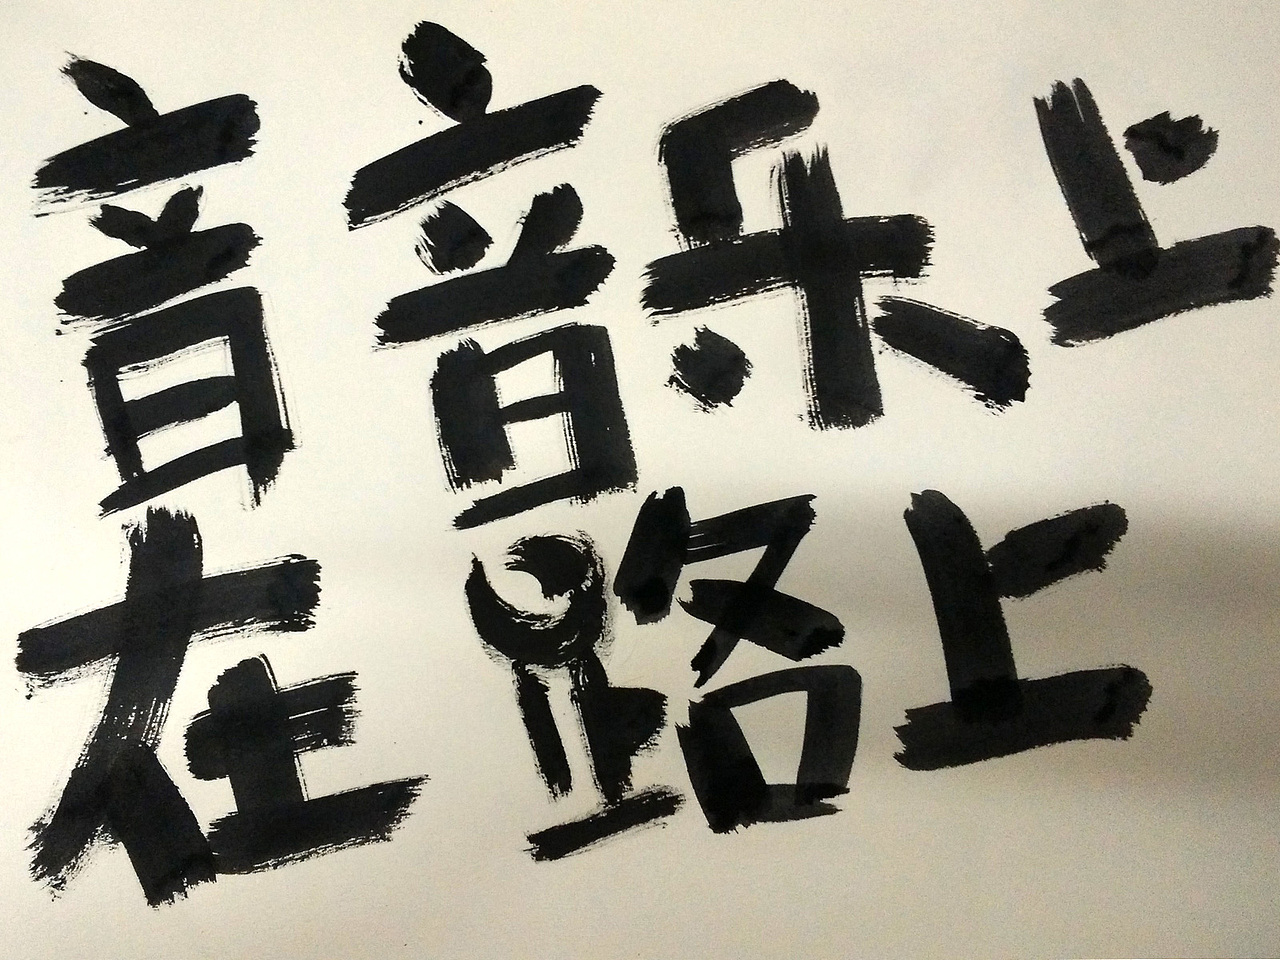 音音乐上
在路上